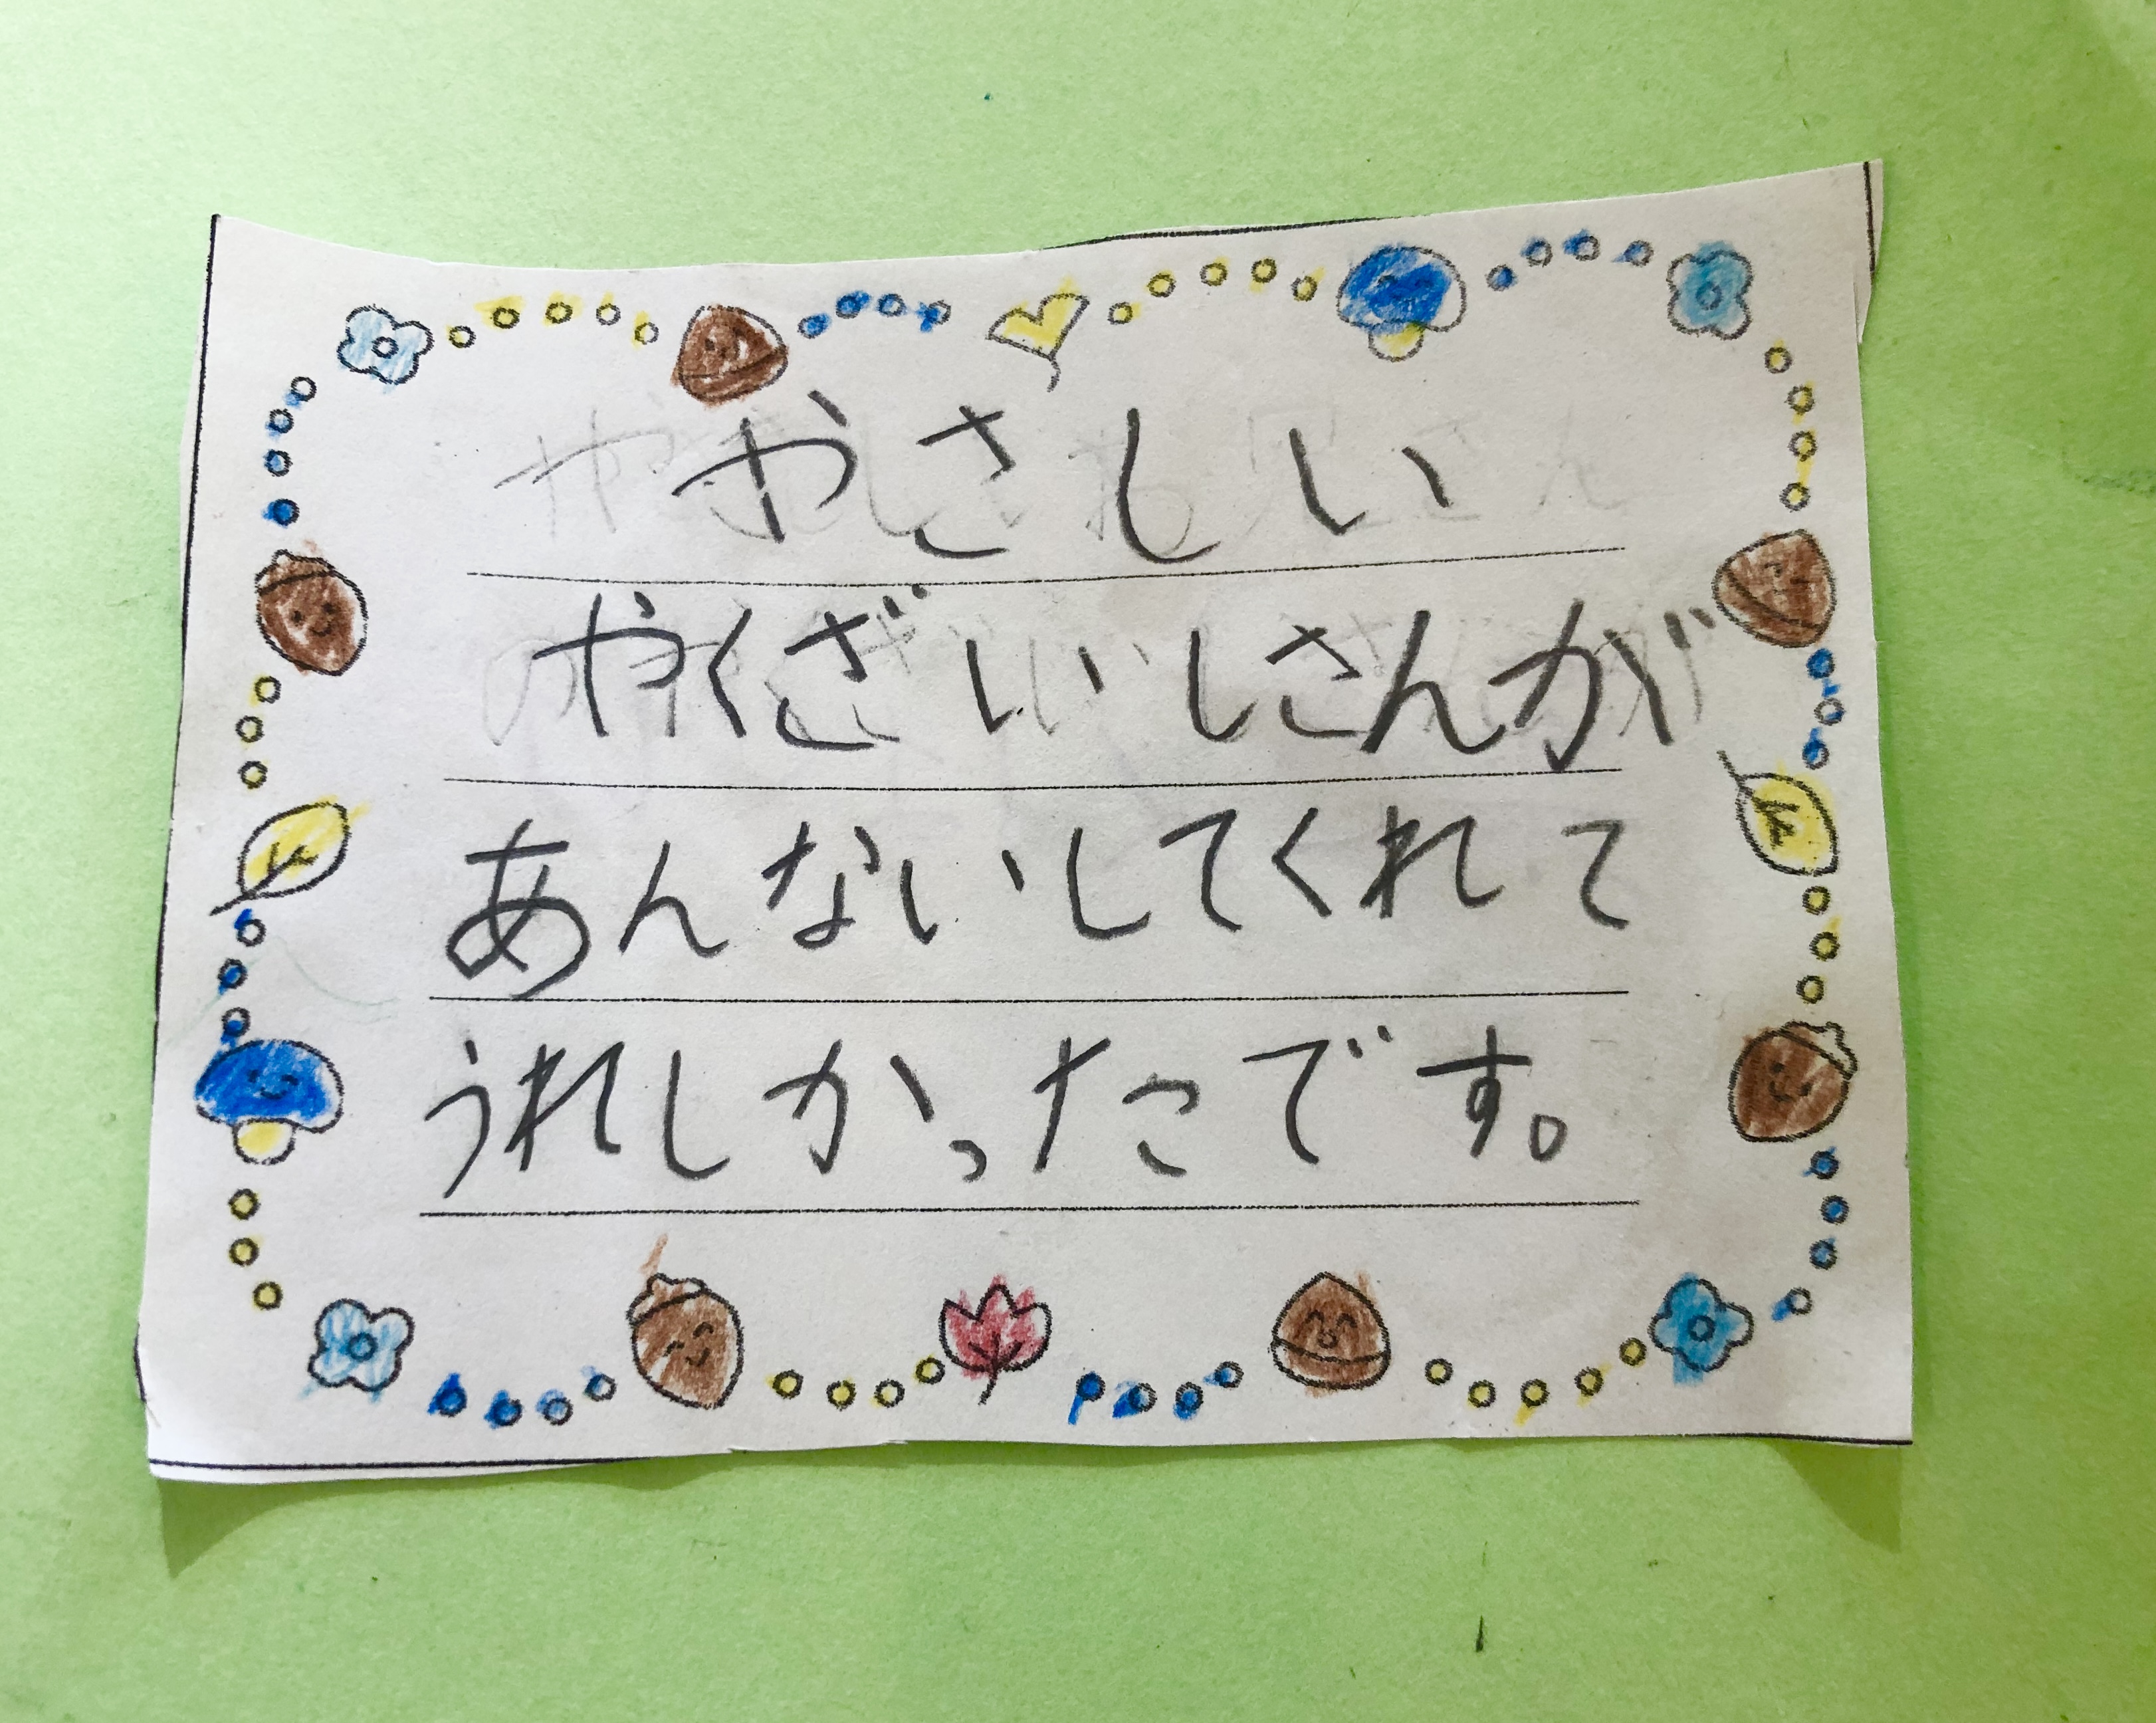 やさしい
やくざいしさんが
あんないしてくれて
うれしかったです。